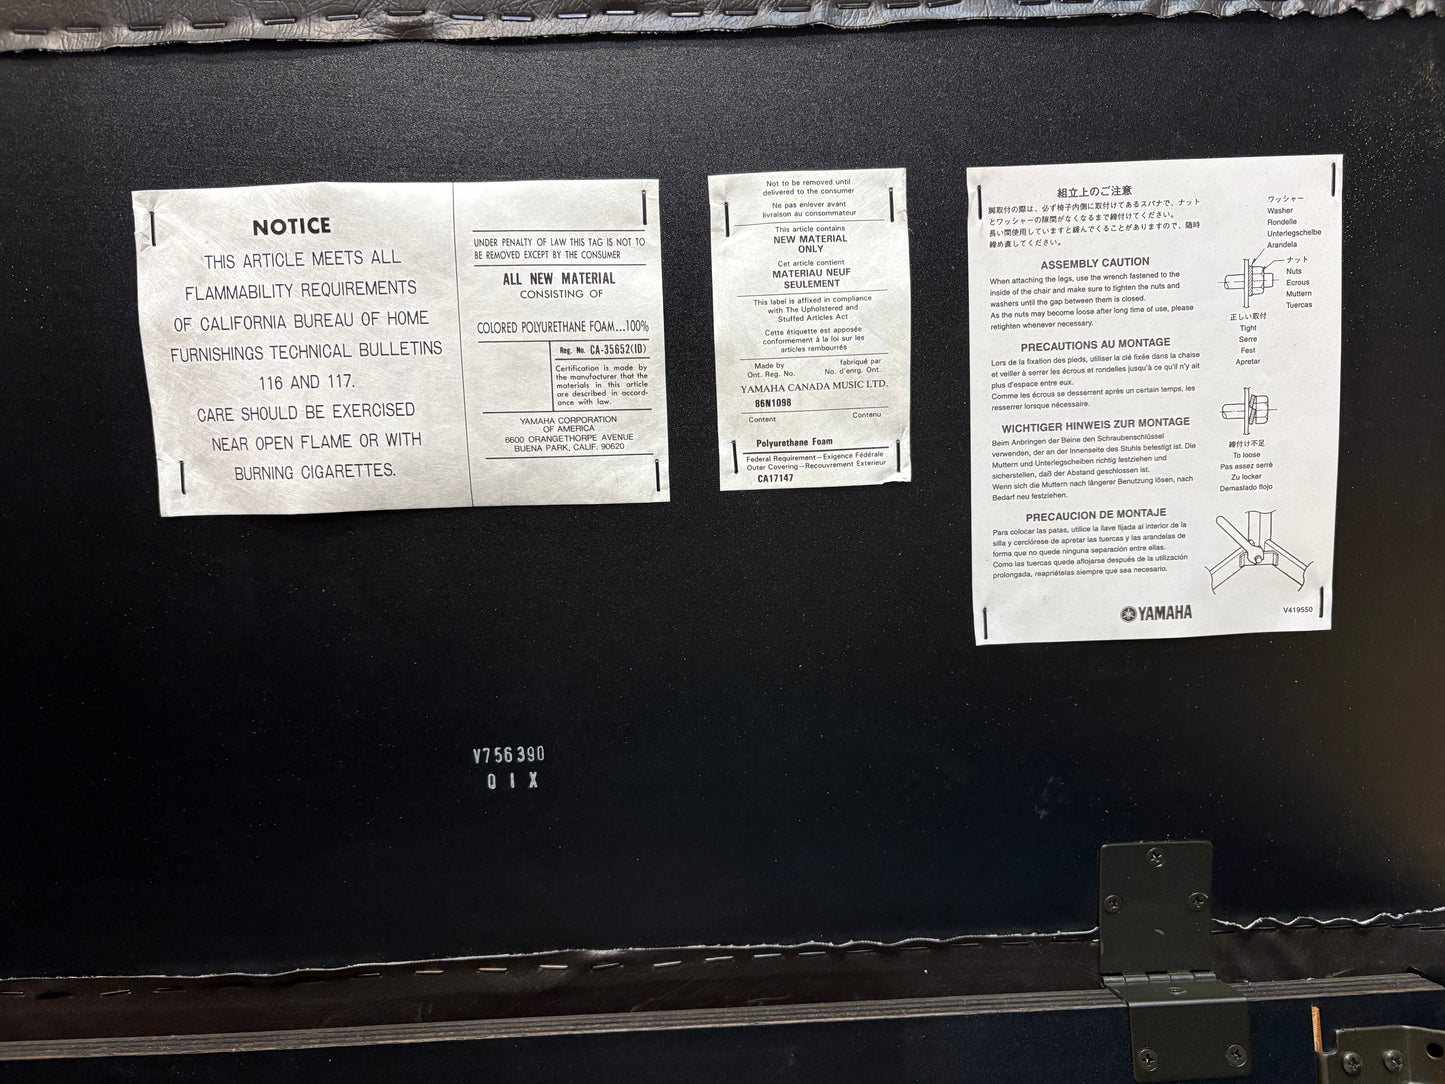 NOTICE
THIS ARTICLE MEETS ALL
FLAMMABILITY REQUIREMENTS
OF CALIFORNIA BUREAU OF HOME
FURNISHINGS TECHNICAL BULLETINS
116 AND 117.
CARE SHOULD BE EXERCISED
NEAR OPEN FLAME OR WITH
BURNING CIGARETTES.
UNDER PENALTY OF LAW THIS TAG IS NOT TO
BE REMOVED EXCEPT BY THE CONSUMER
ALL NEW MATERIAL
CONSISTING OF
COLORED POLYURETHANE FOAM...100%
Reg. No. CA-35652(ID)
Certification is made by
the manufacturer that the
materials in this article
are described in accord-
ance with law.
YAMAHA CORPORATION
OF AMERICA
6600 ORANGETHORPE AVENUE
BUENA PARK, CALIF. 90620
Not to be removed until
delivered to the consumer
Ne pas enlever avant
livraison au consommateur
This article contains
NEW MATERIAL
ONLY
Cet article contient
MATERIAU NEUF
SEULEMENT
This label is affixed in compliance
with The Upholstered and
Stuffed Articles Act
Cette étiquette est apposée
conformement à la loi sur les
articles rembourrés
Made by fabriqué par
Ont. Reg. No. No. d'enrg. Ont.
YAMAHA CANADA MUSIC LTD.
86N1098
Content Contenu
Polyurethane Foam
Federal Requirement—Exigence Fédérale
Outer Covering—Recouvrement Exterieur
CA17147
組立上のご注意
脚取付の際は、必ず椅子内側に取付けてあるスパナで、ナット
とワッシャーの隙間がなくなるまで締付けてください。
長い間使用していますと緩んでくることがありますので、随時
締め直してください。
ASSEMBLY CAUTION
When attaching the legs, use the wrench fastened to the
inside of the chair and make sure to tighten the nuts and
washers until the gap between them is closed.
As the nuts may become loose after long time of use, please
retighten whenever necessary.
PRECAUTIONS AU MONTAGE
Lors de la fixation des pieds, utiliser la clé fixée dans la chaise
et veiller à serrer les écrous et rondelles jusqu'à ce qu'il n'y ait
plus d'espace entre eux.
Comme les écrous se desserrent après un certain temps, les
resserrer lorsque nécessaire.
WICHTIGER HINWEIS ZUR MONTAGE
Beim Anbringen der Beine den Schraubenschlüssel
verwenden, der an der Innenseite des Stuhls befestigt ist. Die
Muttern und Unterlegscheiben richtig festziehen und
sicherstellen, daß der Abstand geschlossen ist.
Wenn sich die Muttern nach längerer Benutzung lösen, nach
Bedarf neu festziehen.
PRECAUCION DE MONTAJE
Para colocar las patas, utilice la llave fijada al interior de la
silla y cerciórese de apretar las tuercas y las arandelas de
forma que no quede ninguna separación entre ellas.
Como las tuercas quede aflojarse después de la utilización
prolongada, reapriételas siempre que sea necesario.
ワッシャー
Washer
Rondelle
Unterlegscheibe
Arandela
ナット
Nuts
Ecrous
Muttern
Tuercas
正しい取付
Tight
Serre
Fest
Apretar
締付け不足
To loose
Pas assez serré
Zu locker
Demaslado flojo
YAMAHA
V419550
V756390
0 1 X